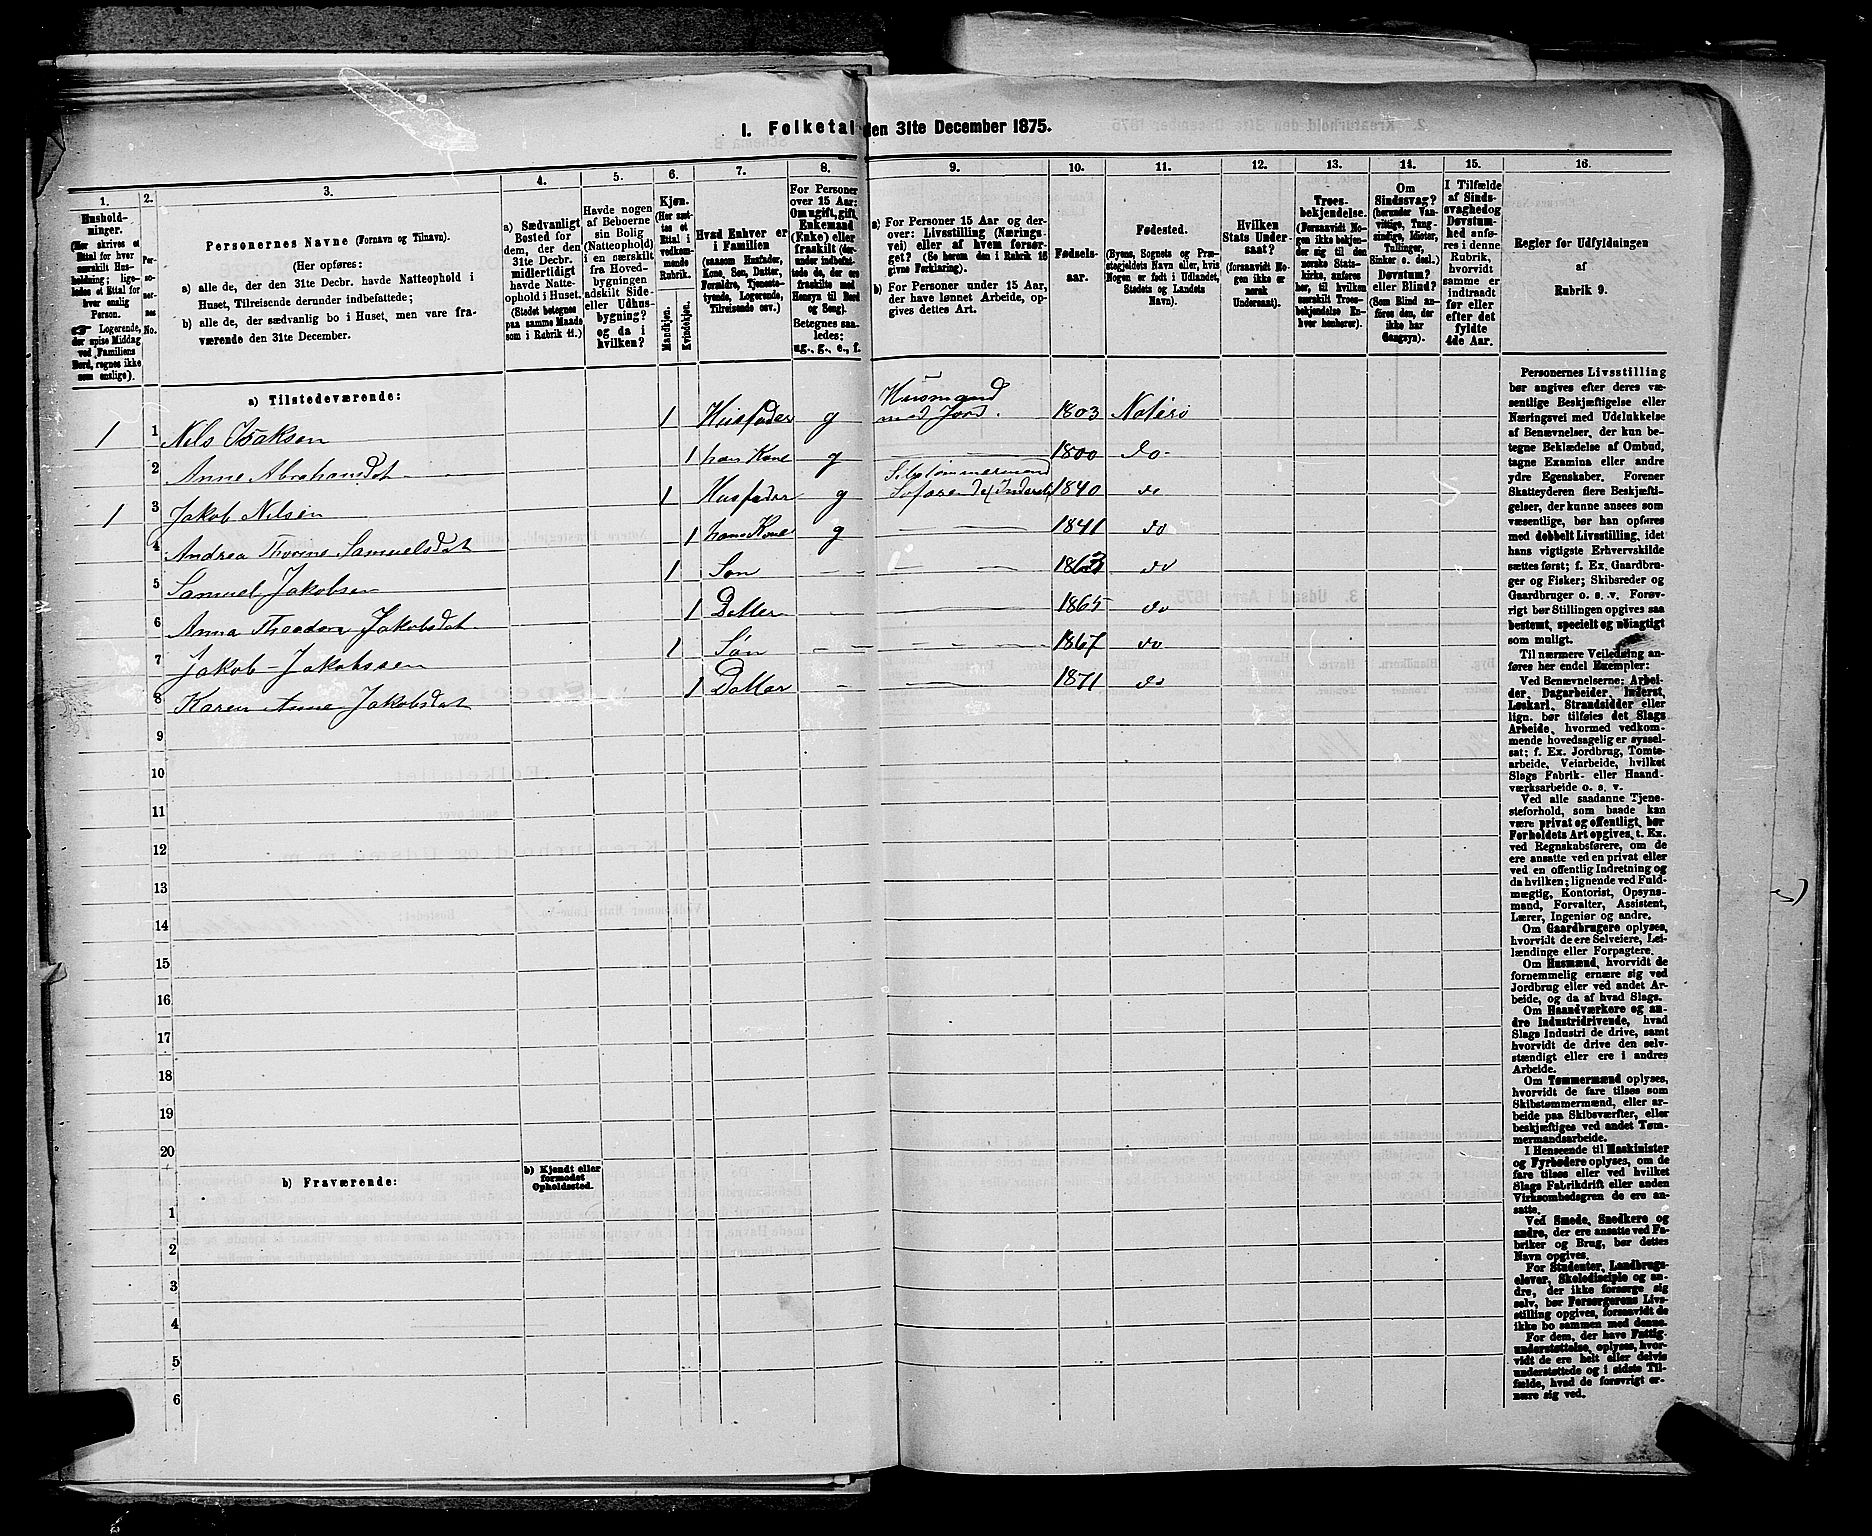 I. Folketal den 31te December 1875.
1.
Hushold-
ninger.
(Her skrives et
Ettal for hver
særskilt Hus-
holdning; lige-
ledes et Ettal for
hver enslig
Person.
☛ Logerende,
der spise Middag
ved Familiens
Bord, regnes ikke
som enslige).
2.
Per-
so-
ner-
nes
No.
3.
Personernes Navne (Fornavn og Tilnavn).
(Her opføres:
a) alle de, der den 31te Decbr. havde Natteophold i
Huset, Tilreisende derunder indbefattede;
b) alle de, der sædvanlig bo i Huset, men vare fra-
værende den 31te December.
4.
a) Sædvanligt
Bosted for
dem, der den
31te Decbr.
midlertidigt
havde Natte-
ophold i Huset.
(Stedet betegnes
paa samme Maade
som i Rubrik 11.)
5.
Havde nogen
af Beboerne
sin Bolig
(Natteophold)
i en særskilt
fra Hoved-
bygningen
adskilt Side-
eller Udhus-
bygning?
og da i
hvilken?
6.
Kjøn.
(Her sæt-
tes et
Ettal i
vedkom-
mende
Rubrik.
Mandkjøn.
Kvindekjøn.
7.
Hvad Enhver er
i Familien
(saasom Husfader,
Kone, Søn, Datter,
Forældre, Tjeneste-
tyende, Logerende,
Tilreisende osv.)
8.
For Personer
over 15 Aar:
Om ugift, gift,
Enkemand
(Enke) eller
fraskilt (der-
under indbefat-
tede de, der ere
fraskilte med
Hensyn til Bord
og Seng).
Betegnes saa-
ledes:
ug., g., e., f.
9.
a) For Personer 15 Aar og der-
over: Livsstilling (Nærings-
vei) eller af hvem forsør-
get? (Se herom den i Rubrik 16
givne Forklaring).
b) For Personer under 15 Aar,
der have lønnet Arbeide, op-
gives dettes Art.
10.
Fødsels-
aar.
11.
Fødested.
(Byens, Sognets og Præ-
stegjeldets Navn eller, hvis
Nogen er født i Udlandet,
Stedets og Landets
Navn).
12.
Hvilken
Stats Under-
saat?
(forsaavidt No-
gen ikke er
norsk
Undersaat).
13.
Troes-
bekjendelse.
(Forsaavidt No-
gen ikke bekjen-
der sig til den
norske Stats-
kirke, anføres
her, til hvilken
særskilt Troes-
bekjendelse En-
hver henhører).
14.
Om
Sindssvag?
(herunder Van-
vittige, Tung-
sindige, Idioter,
Tullinger,
Sinker o. desl.)
Døvstum?
eller Blind?
(Som Blind an-
føres den, der
ikke har
Gangsyn).
15.
I Tilfælde
af Sinds-
svaghed og
Døvstum-
hed anfø-
res i denne
Rubrik,
hvorvidt
samme er
indtraadt
før eller
efter det
fyldte
4de Aar.
16.
Regler for Udfyldningen
af
Rubrik 9.
a) Tilstedeværende:
1 1 Nils Isaksen 1 Husfader g Husmand med Jord. 1803 Nøterø
2 Anne Abrahamsdat 1 hans Kone g 1800 do
1 3 Jakob Nilsen 1 Husfader g Sibstømmermand Sofarende 1840 do
4 Andrea Thorine Samuelsdat 1 hans Kone g 1841 do
5 Samuel Jakobsen 1 Søn 1863 do
6 Anna Theodora Jakobsdat 1 Datter 1865 do
7 Jakob Jakobssen 1 Søn 1867 do
8 Karen Anne Jakobsdat 1 Datter 1871 do
9
10
11
12
13
14
15
16
17
18
19
20
b) Fraværende:
b) Kjendt eller
formodet
Opholdssted.
1
2
3
4
5
6
Personernes Livsstilling
bør angives efter deres væ-
sentlige Beskjæftigelse eller
Næringsvei med Udelukkelse
af Benævnelser, der kun be-
tegne Beklædelse af Ombud,
tagne Examina eller andre
ydre Egenskaber. Forener
Skatteyderen flere Beskjæfti-
gelser, der kunne ansees som
væsentlige, bør han opføres
med dobbelt Livsstilling, idet
hans vigtigste Erhvervskilde
sættes først; f. Ex. Gaardbru-
ger og Fisker; Skibsreder og
Gaardbruger o. s. v. Forøv-
rigt bør Stillingen opgives saa
bestemt, specielt og nöiagtigt
som muligt.
Til nærmere Veiledning an-
føres her endel Exempler:
Ved Benævnelserne: Arbei-
der, Dagarbeider, Inderst,
Løskarl, Strandsidder eller
lign. bør tilføies det Slags
Arbeide, hvormed vedkom-
mende hovedsagelig er syssel-
sat; f. Ex. Jordbrug, Tomte-
arbeide, Veiarbeide, hvilket
Slags Fabrik- eller Haand-
værksarbeide o. s. v.
Ved alle saadanne Tjene-
steforhold, som baade kan
være privat og offentligt, bør
Forholdets Art opgives, t. Ex.
ved Regnskabsførere, om de
ere ansatte ved en privat eller
ved en offentlig Indretning og
da hvilken; lignende ved Fuld-
mægtig, Kontorist, Opsyns-
mand, Forvalter, Assistent,
Lærer, Ingeniør og andre.
Om Gaardbrugere oplyses,
hvorvidt de ere Selveiere, Lei-
lændinge eller Forpagtere.
Om Husmænd, hvorvidt de
fornemmelig ernære sig ved
Jordbrug eller ved andet Ar-
beide, og da af hvad Slags.
Om Haandværkere og an-
dre Industridrivende, hvad
Slags Industri de drive, samt
hvorvidt de drive den selv-
stændigt eller ere i andres
Arbeide.
Om Tømmermænd oplyses,
hvorvidt de fare tilses som
Skibstømmermænd, eller ar-
beide paa Skibsværfter, eller
beskjæftiges ved andet Tøm-
mermandsarbeide.
I Henseende til Maskinister
og Fyrbødere oplyses, om de
fare tilses eller ved hvilket
Slags Fabrikdrift eller anden
Virksomhedsgren de ere an-
satte.
Ved Smede, Snedkere og
andre, der ere ansatte ved Fa-
briker og Brug, bør dettes
Navn opgives.
For Studenter, Landbrugs-
elever, Skoledisciple og an-
dre, der ikke forsørge sig
selv, bør Forsørgerens Livs-
stilling opgives, forsaavidt de
ikke bo sammen med denne.
For dem, der have Fattig-
understøttelse, oplyses, hvor-
vidt de ere helt eller delvis
understøttede og i sidste Til-
fælde, hvad de forøvrigt er-
nære sig ved.